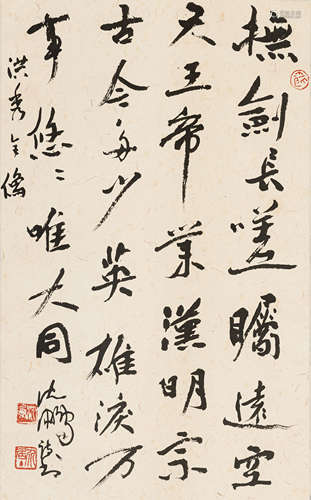 撫劍長嗟矚遠空
天王帝業漢明宗
古今多少英雄淚万
事悠〻唯大同
洪秀全像
沈鵬